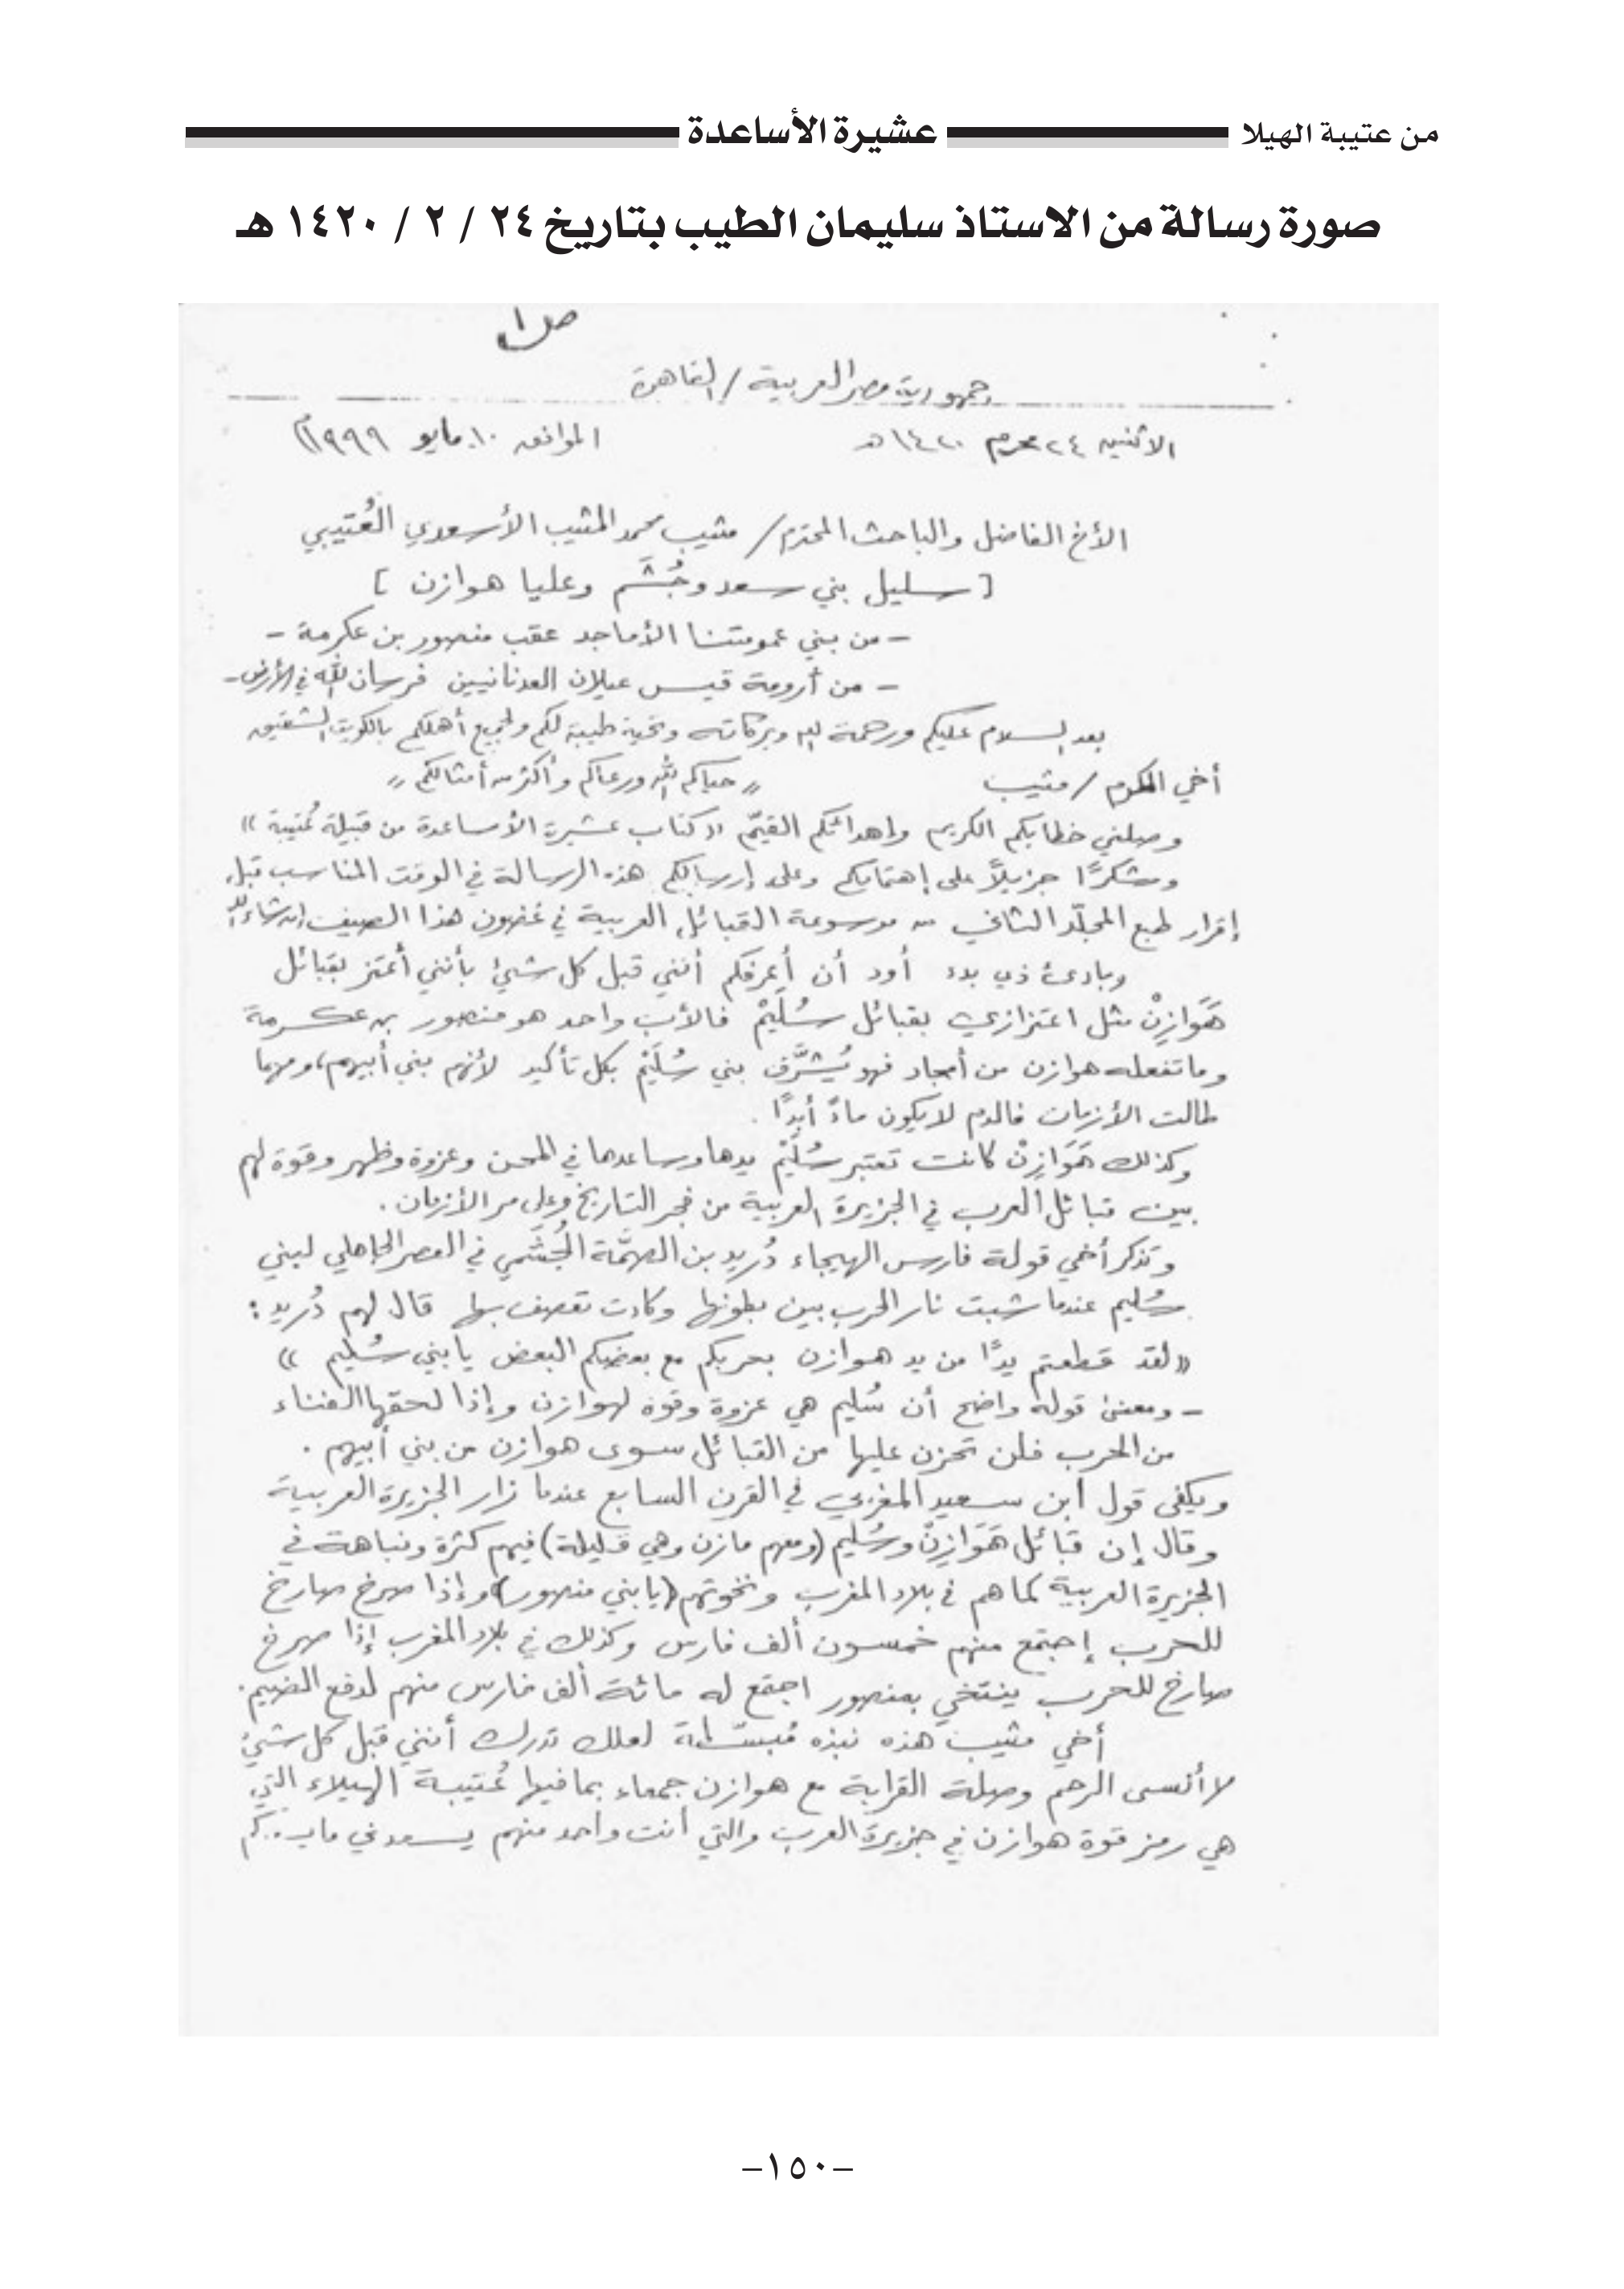 من عتيبة الهيلا عشيرة الأساعدة
صورة رسالة من الاستاذ سليمان الطيب بتاريخ ٢٤ / ٢ / ١٤٢٠ هـ
ص ١
جمهورية مصر العربية / القاهرة
الاثنين ٢٤ محرم ١٤٢٠ هـ الموافق ١٠ مايو ١٩٩٩م
الأخ الفاضل والباحث المحترم / مثيب محمد المثيب الأسعدي العُتيبي
[ سليل بني سعد وجُشَم وعليا هوازن ]
- من بني عمومتنا الأماجد عقب منصور بن عكرمة -
- من أرومة قيس عيلان العدنانيين فرسان الله في الأرض -
بعد السلام عليكم ورحمة الله وبركاته وتحية طيبة لكم ولجميع أهلكم بالكويت الشقيق
أخي المكرم / مثيب " حياكم الله ورعاكم وأكثر من أمثالكم "
وصلني خطابكم الكريم وإهدائكم القيّم « كتاب عشيرة الأساعدة من قبيلة عُتيبة »
وشكرًا جزيلاً على إهتمامكم وعلى إرسالكم هذه الرسالة في الوقت المناسب قبل
إقرار طبع المجلّد الثاني من موسوعة القبائل العربية في غضون هذا الصيف إن شاء الله
وبادئ ذي بدء أود أن أعرفكم أنني قبل كل شيئ بأنني أعتز بقبائل
هَوَازِنْ مثل اعتزازي بقبائل سُلَيْم فالأب واحد هو منصور بن عكرمة
وما تفعله هوازن من أمجاد فهو يُشرَّف بني سُلَيْم بكل تأكيد لأنهم بني أبيهم، ومهما
طالت الأزمان فالدم لا يكون ماءً أبدًا .
وكذلك هَوَازِنْ كانت تعتبر سُلَيْم يدها وساعدها في المحن وعزوة وظهر وقوة لهم
بين قبائل العرب في الجزيرة العربية من فجر التاريخ وعلى مر الأزمان .
وتذكر أخي قولة فارس الهيجاء دُريد بن الصِّمَّة الجُشَمي في العصر الجاهلي لبني
سُليم عندما شبت نار الحرب بين بطونها وكادت تعصف بها قال لهم دُريد :
« لقد قطعتم يدًا من يد هوازن بحربكم مع بعضكم البعض يا بني سُليم »
- ومعنى قوله واضح أن سُليم هي عزوة وقوة لهوازن وإذا لحقها الفناء
من الحرب فلن تحزن عليها من القبائل سوى هوازن من بني أبيهم .
ويكفي قول ابن سعيد المغربي في القرن السابع عندما زار الجزيرة العربية
وقال إن قبائل هَوَازِنْ وسُليم (ومعهم مازن وهي قليلة) فيهم كثرة ونباهة في
الجزيرة العربية كما هم في بلاد المغرب ونخوتهم (يا بني منصور) وإذا صرخ صارخ
للحرب إجتمع منهم خمسون ألف فارس وكذلك في بلاد المغرب إذا صرخ
صارخ للحرب ينتخي بمنصور اجتمع له مائة ألف فارس منهم لدفع الضيم .
أخي مثيب هذه نبذه مُبسّطة لعلك تدرك أنني قبل كل شيئ
لا أنسى الرحم وصلة القرابة مع هوازن جمعاء بما فيها عُتيبة الهيلاء التي
هي رمز قوة هوازن في جزيرة العرب والتي أنت واحد منهم يسعدني ما
-١٥٠-